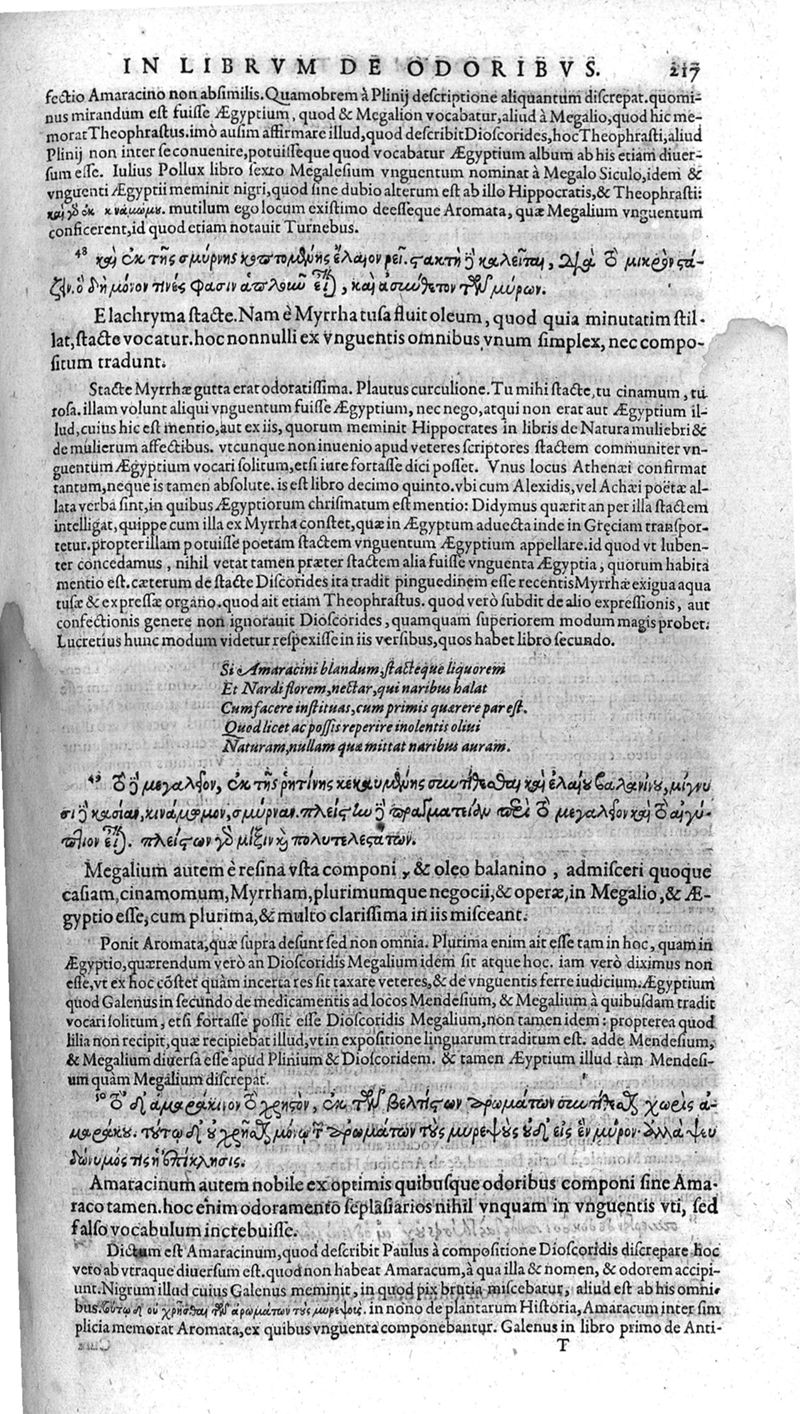 IN LIBRVM DE ODORIBVS. 217
fectio Amaracino non absimilis. Quamobrem à Plinij descriptione aliquantum discrepat. quomi-
nus mirandum est fuisse Ægyptium, quod & Megalion vocabatur, aliud à Megalio, quod hic me-
morat Theophrastus. imò ausim affirmare illud, quod describit Dioscorides, hoc Theophrasti, aliud
Plinij non inter se conuenire, potuisseque quod vocabatur Ægyptium album ab his etiam diuer-
sum esse. Iulius Pollux libro sexto Megalesium vnguentum nominat à Megalo Siculo, idem &
vnguenti Ægyptii meminit nigri, quod sine dubio alterum est ab illo Hippocratis, & Theophrastii:
mutilum ego locum existimo deesseque Aromata, quæ Megalium vnguentum
conficerent, id quod etiam notauit Turnebus.
48 καὶ ἐκ τῆς σμύρνης κοπτομένης ἔλαιον ῥεῖ. στακτὴ δὲ καλεῖται, διὰ τὸ μικρὸν στά-
ζειν. ὃ δὴ μόνον τινές φασιν ἁπλοῦν εἶναι, καὶ ἀσύνθετον τῶν μύρων.
E lachryma stacte. Nam è Myrrha tusa fluit oleum, quod quia minutatim stil-
lat, stacte vocatur. hoc nonnulli ex vnguentis omnibus vnum simplex, nec compo-
situm tradunt.
Stacte Myrrhæ gutta erat odoratissima. Plautus curculione. Tu mihi stacte, tu cinamum, tu
rosa. illam volunt aliqui vnguentum fuisse Ægyptium, nec nego, atqui non erat aut Ægyptium il-
lud, cuius hic est mentio, aut ex iis, quorum meminit Hippocrates in libris de Natura muliebri &
de mulierum affectibus. vtcunque non inuenio apud veteres scriptores stactem communiter vn-
guentum Ægyptium vocari solitum, etsi iure fortasse dici posset. Vnus locus Athenæi confirmat
tantum, neque is tamen absolute. is est libro decimo quinto. vbi cum Alexidis, vel Achæi poëtæ al-
lata verba sint, in quibus Ægyptiorum chrismatum est mentio: Didymus quærit an per illa stactem
intelligat, quippe cum illa ex Myrrha constet, quæ in Ægyptum aduecta inde in Greciam transpor-
tetur. propter illam potuisse poetam stactem vnguentum Ægyptium appellare. id quod vt luben-
ter concedamus, nihil vetat tamen præter stactem alia fuisse vnguenta Ægyptia, quorum habita
mentio est. cæterum de stacte Discorides ita tradit pinguedinem esse recentis Myrrhæ exigua aqua
tusæ & expressæ organo. quod ait etiam Theophrastus. quod verò subdit de alio expressionis, aut
confectionis genere non ignorauit Dioscorides, quamquam superiorem modum magis probet.
Lucretius hunc modum videtur respexisse in iis versibus, quos habet libro secundo.
Si Amaracini blandum, stacteque liquorem
Et Nardi florem, nectar, qui naribus halat
Cum facere instituas, cum primis quærere par est.
Quod licet ac possis reperire inolentis oliui
Naturam, nullam quæ mittat naribus auram.
49 τὸ δὲ μεγαλεῖον, ἐκ τῆς ῥητίνης κεκαυμένης συντίθεσθαι καὶ ἐλαίου βαλανίνου, μίγνυ
σι δὲ κασίαν, κινάμωμον, σμύρναν. πλείστην δὲ πραγματείαν περὶ τὸ μεγαλεῖον καὶ τὸ αἰγύ-
πτιον εἶναι. πλείστων γὰρ μίξιν καὶ πολυτελεστάτων.
Megalium autem è resina vsta componi, & oleo balanino, admisceri quoque
casiam, cinamomum, Myrrham, plurimumque negocii, & operæ, in Megalio, & Æ-
gyptio esse, cum plurima, & multo clarissima in iis misceant.
Ponit Aromata, quæ supra desunt sed non omnia. Plurima enim ait esse tam in hoc, quam in
Ægyptio, quærendum verò an Dioscoridis Megalium idem sit atque hoc. iam verò diximus non
esse, vt ex hoc cōstet quàm incerta res sit taxare veteres, & de vnguentis ferre iudicium. Ægyptium
quod Galenus in secundo de medicamentis ad locos Mendesium, & Megalium à quibusdam tradit
vocari solitum, etsi fortasse possit esse Dioscoridis Megalium, non tamen idem: propterea quod
lilia non recipit, quæ recipiebat illud, vt in expositione linguarum traditum est. adde Mendesium,
& Megalium diuersa esse apud Plinium & Dioscoridem. & tamen Æyptium illud tàm Mendesi-
um quàm Megalium discrepat.
50 τὸ δὲ ἀμαράκινον τὸ χρηστὸν, ἐκ τῶν βελτίστων ἀρωμάτων συντίθεσθαι χωρὶς ἀ-
μαράκου. τούτῳ δὲ οὐ χρῆσθαι μόνῳ τῶν ἀρωμάτων τοὺς μυρεψοὺς οὐδὲ εἰς ἓν μύρον. ἀλλὰ ψευ
δώνυμός τις ἡ ἐπίκλησις.
Amaracinum autem nobile ex optimis quibusque odoribus componi sine Ama-
raco tamen. hoc enim odoramento seplasiarios nihil vnquam in vnguentis vti, sed
falso vocabulum inctebuisse.
Dictum est Amaracinum, quod describit Paulus à compositione Dioscoridis discrepare hoc
vero ab vtraque diuersum est. quod non habeat Amaracum, à qua illa & nomen, & odorem accipi-
unt. Nigrum illud cuius Galenus meminit, in quod pix brutia miscebatur, aliud est ab his omni-
bus. τούτῳ δὲ οὐ χρῆσθαι τῶν ἀρωμάτων τοὺς μυρεψούς. in nono de plantarum Historia, Amaracum inter sim
plicia memorat Aromata, ex quibus vnguenta componebantur. Galenus in libro primo de Anti-
T